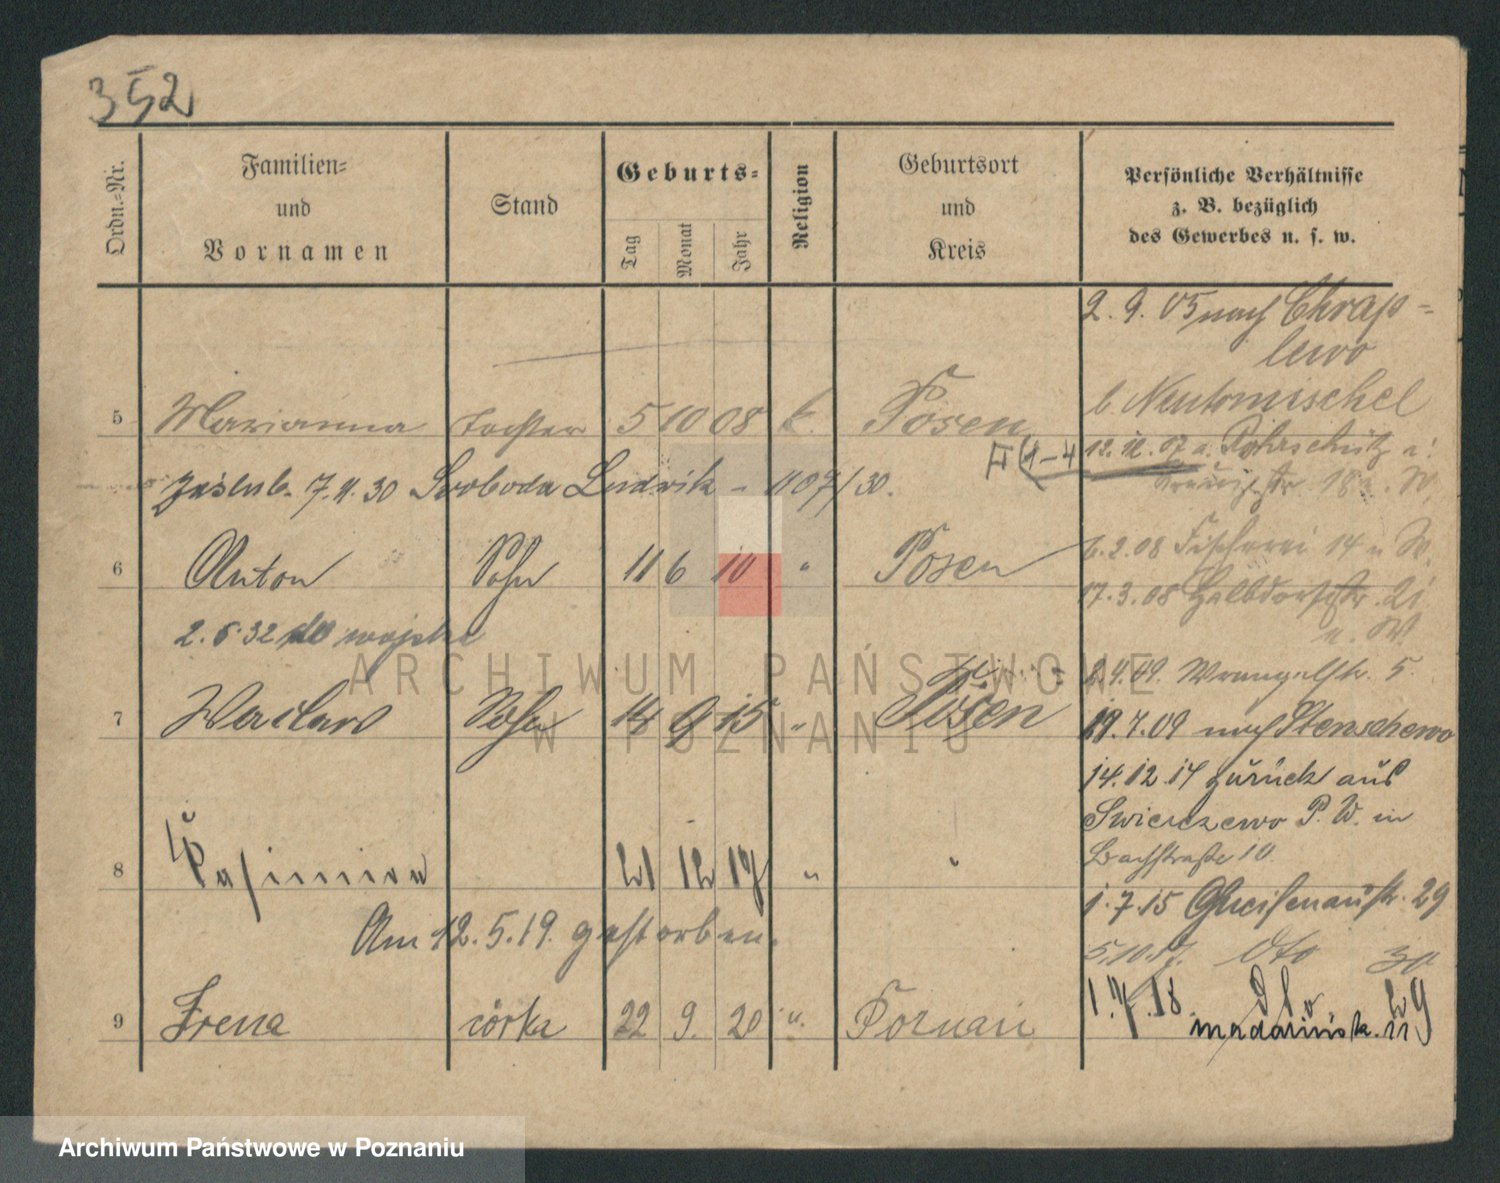 352
Ordn.-Nr.
Familien-
und
Vornamen
Stand
Geburts-
Tag
Monat
Jahr
Religion
Geburtsort
und
Kreis
Persönliche Verhältnisse
z. B. bezüglich
des Gewerbes u. s. w.
2. 9. 05 nach Chrap-
lewo
b. Neutomischel
5 Marianna Tochter 5 10 08 k. Posen
II (1-4
zaślub. 7.11.30 Svoboda Ludwik - 1107/30.
6 Anton Sohn 11 6 10 " Posen
6.2.08 Fischerei 14 u W.
17.3.08 Halbdorfstr. 21
u. W
2.5.32 do wojska
2.4.09. Wrangelstr. 5.
7 Waclaw Sohn 14 9 15 " Posen
19.7.09 nach Stenschewo
14.12.14 zurück aus
Swierczewo P. W. in
Bachstraße 10
8 21 12 17 " "
1.7.15 Gneisenaustr. 29
Am 12.5.19. gestorben.
5.10.17. dto 30
9 Irena córka 22 9. 20 u. Poznań
1.7.18. dto 29
Madalińsk.
ARCHIWUM PAŃSTWOWE
W POZNANIU
Archiwum Państwowe w Poznaniu